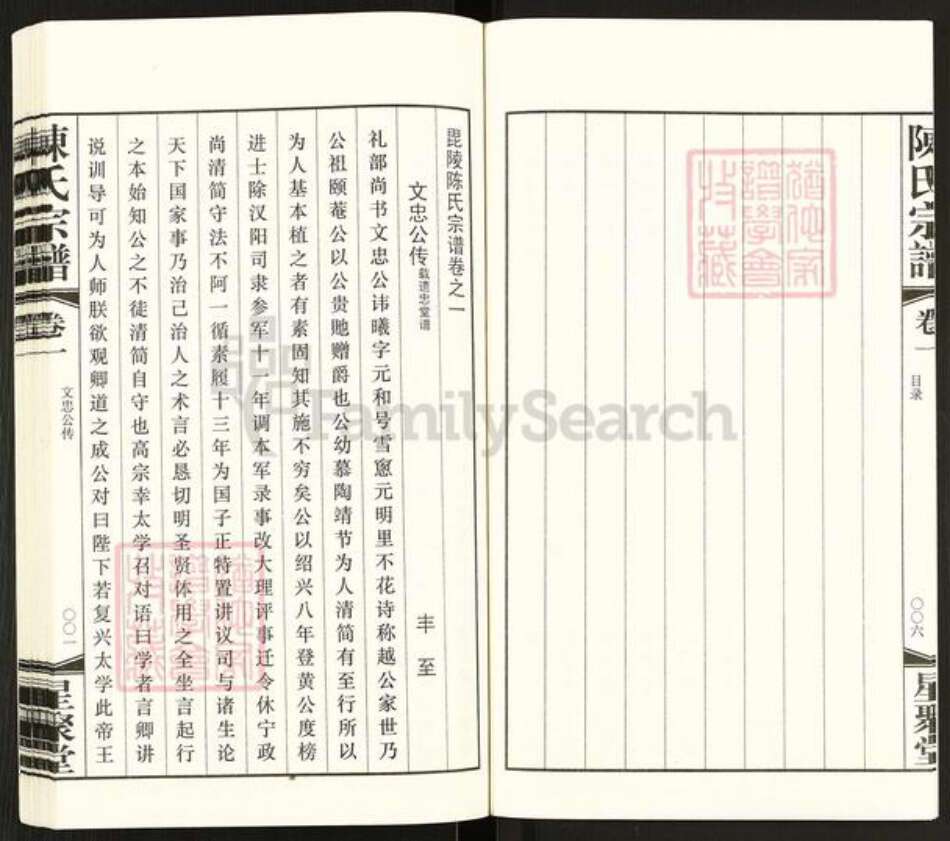 陳氏宗譜
卷一
目录
〇〇六
星聚堂
毘陵陈氏宗谱卷之一
文忠公传 载遗忠堂谱 丰至
礼部尚书文忠公讳曦字元和号雪窻元明里不花诗称越公家世乃
公祖颐菴公以公贵貤赠爵也公幼慕陶靖节为人清简有至行所以
为人基本植之者有素固知其施不穷矣公以绍兴八年登黄公度榜
进士除汉阳司隶参军十一年调本军录事改大理评事迁令休宁政
尚清简守法不阿一循素履十三年为国子正特置讲议司与诸生论
天下国家事乃治己治人之术言必恳切明圣贤体用之全坐言起行
之本始知公之不徒清简自守也高宗幸太学召对语曰学者言卿讲
说训导可为人师朕欲观卿道之成公对曰陛下若复兴太学此帝王
陳氏宗譜
卷一
文忠公传
〇〇一
星聚堂
FamilySearch